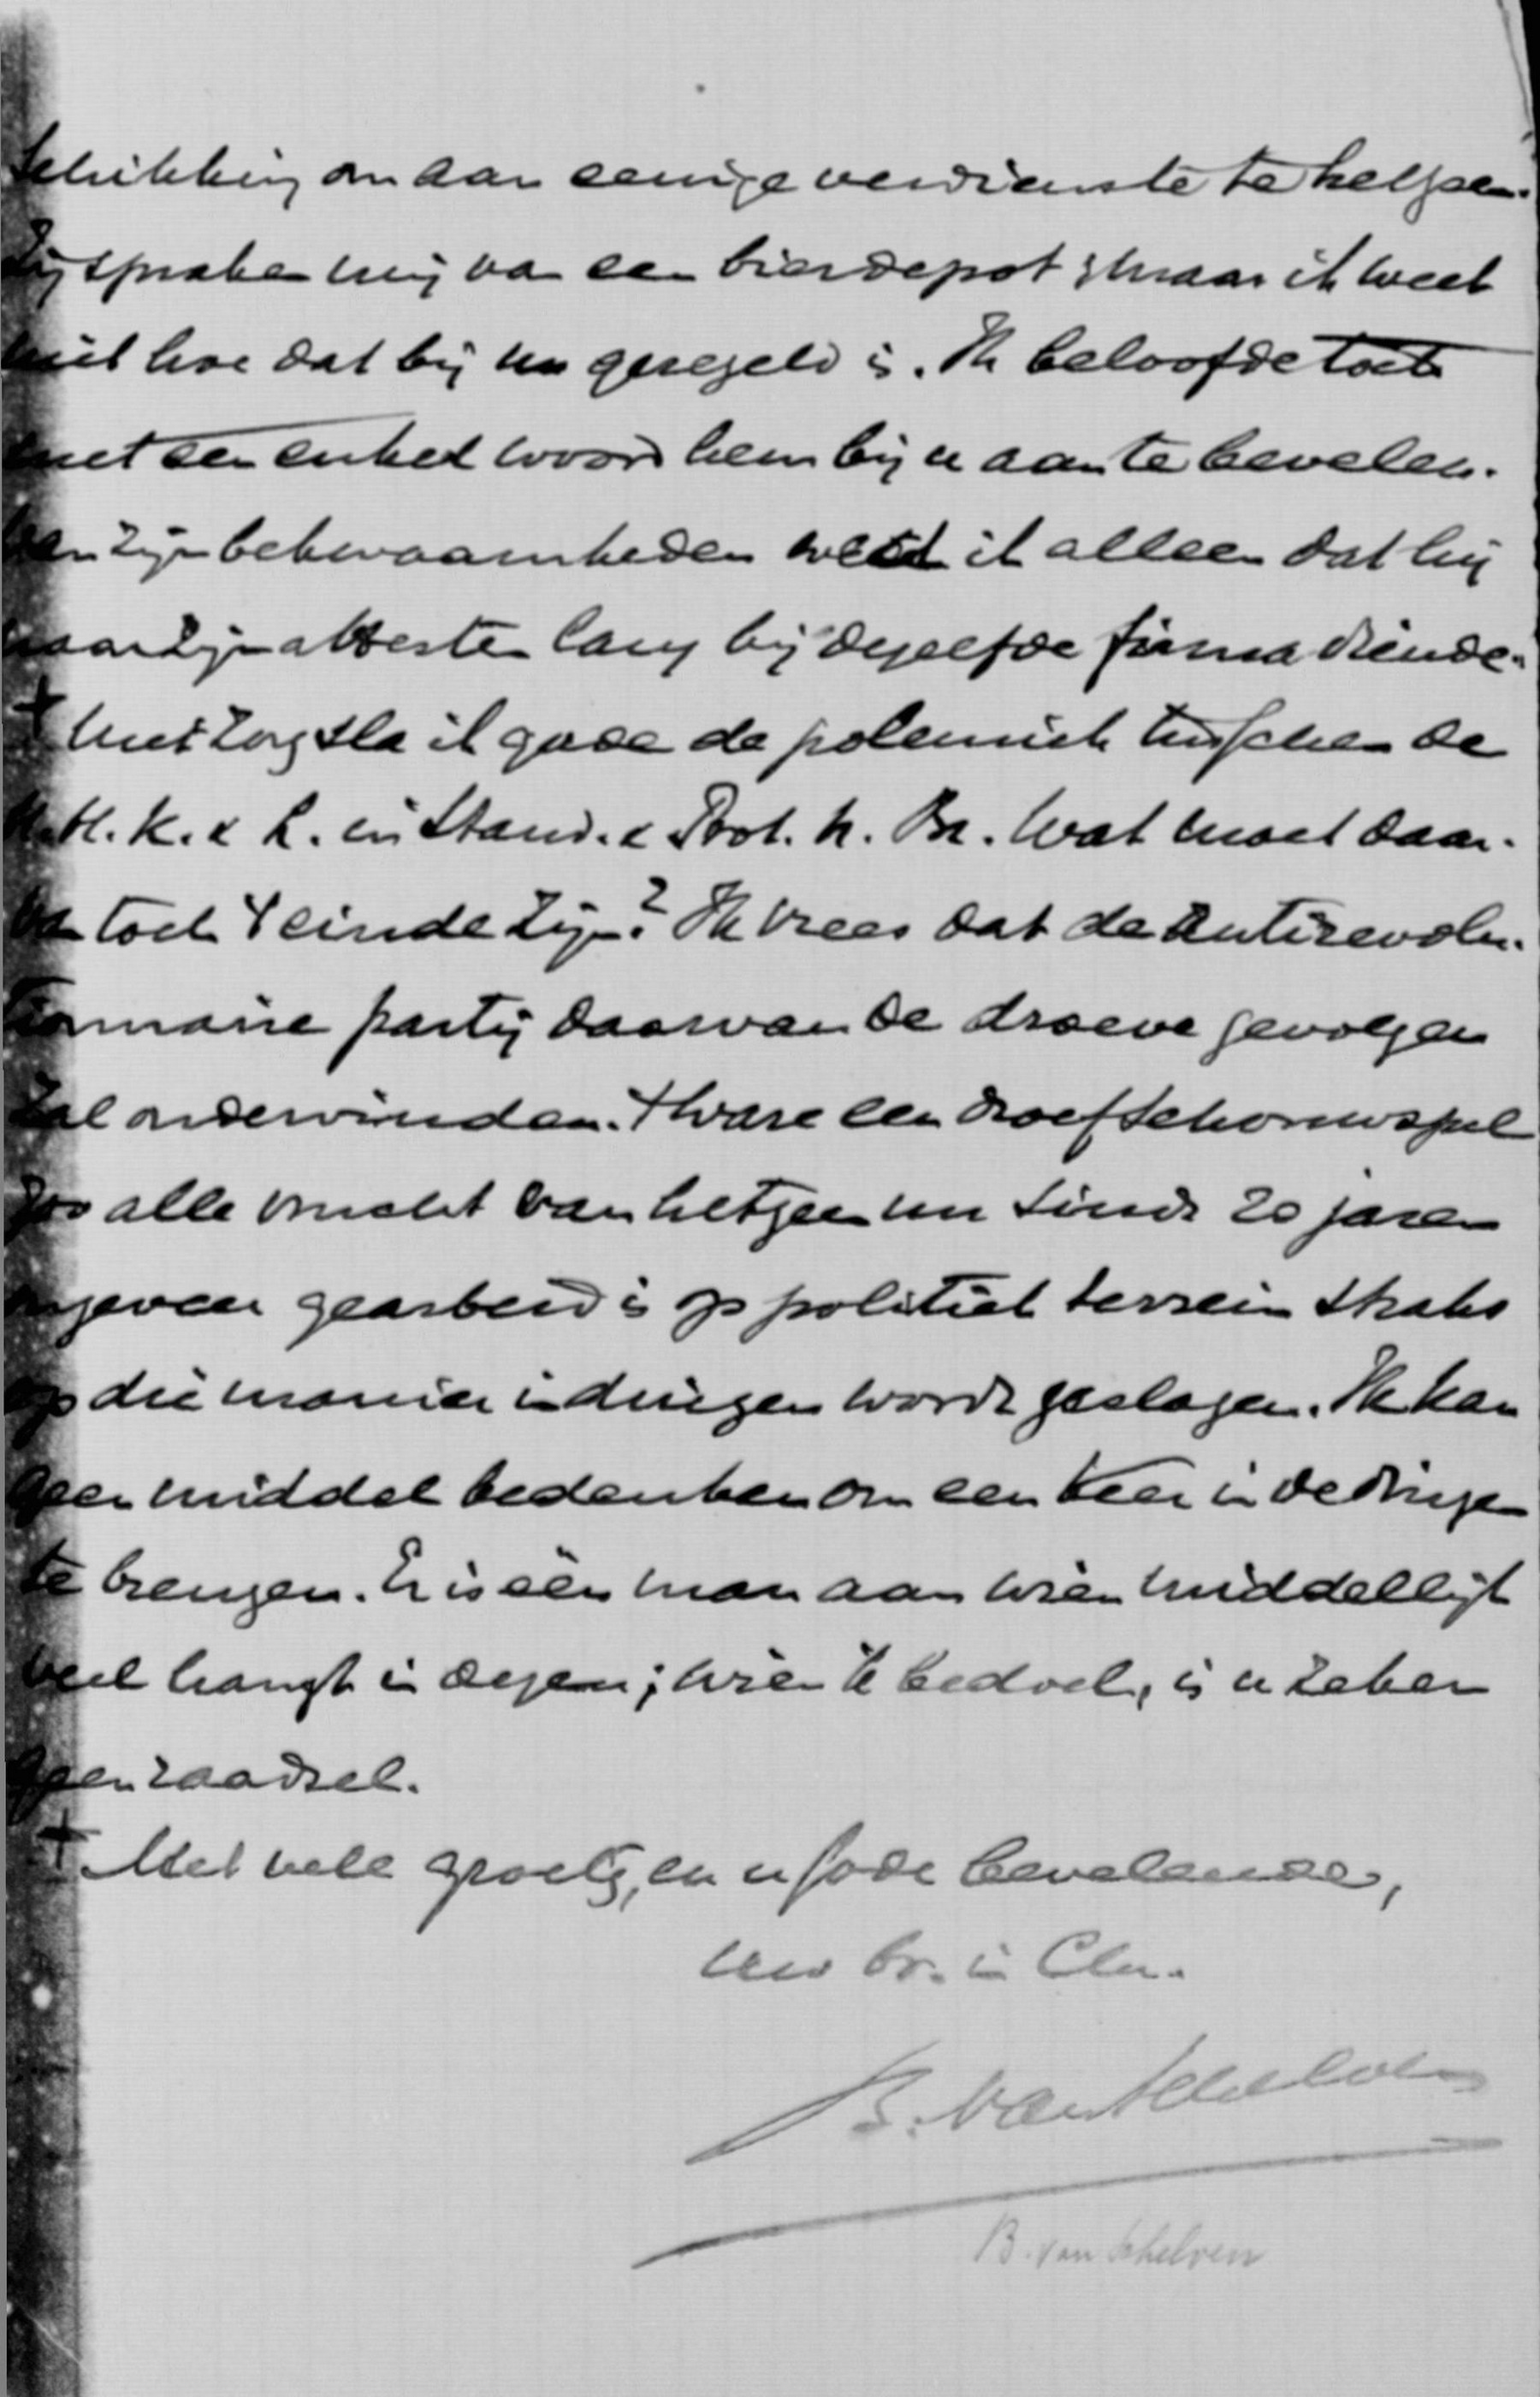 schikking om aan eenige verdienste te helpen.
Zij spraken mij van een bierdepot, maar ik weet
niet hoe dat bij hen geregeld is. Ik beloofde toch
met een enkel woord hem bij u aan te bevelen.
Van zijn bekwaamheden weet ik alleen dat hij
naar zijn attesten lang bij dezelfde firma diende.
Met zorg sla ik gade de polemiek tusschen de
H. K. & L. en Stand. & Prot. N. Br. Wat moet daar-
van toch 't einde zijn? Ik vrees dat de Antirevolu-
tionnaire partij daarvan de droeve gevolgen
zal ondervinden. 't Ware een droef schouwspel
zoo alle vrucht van hetgeen nu sinds 20 jaren
ongeveer gearbeid is op politiek terrein straks
op die manier in duigen wordt geslagen. Ik kan
geen middel bedenken om een keer in de dingen
te brengen. Er is één man aan wien middellijk
veel hangt in dezen; wien ik bedoel, is u zeker
geen raadsel.
Met vele groets, en u Gode bevelende,
Uw br. in Chr.
B. van Schelven
B. van Schelven